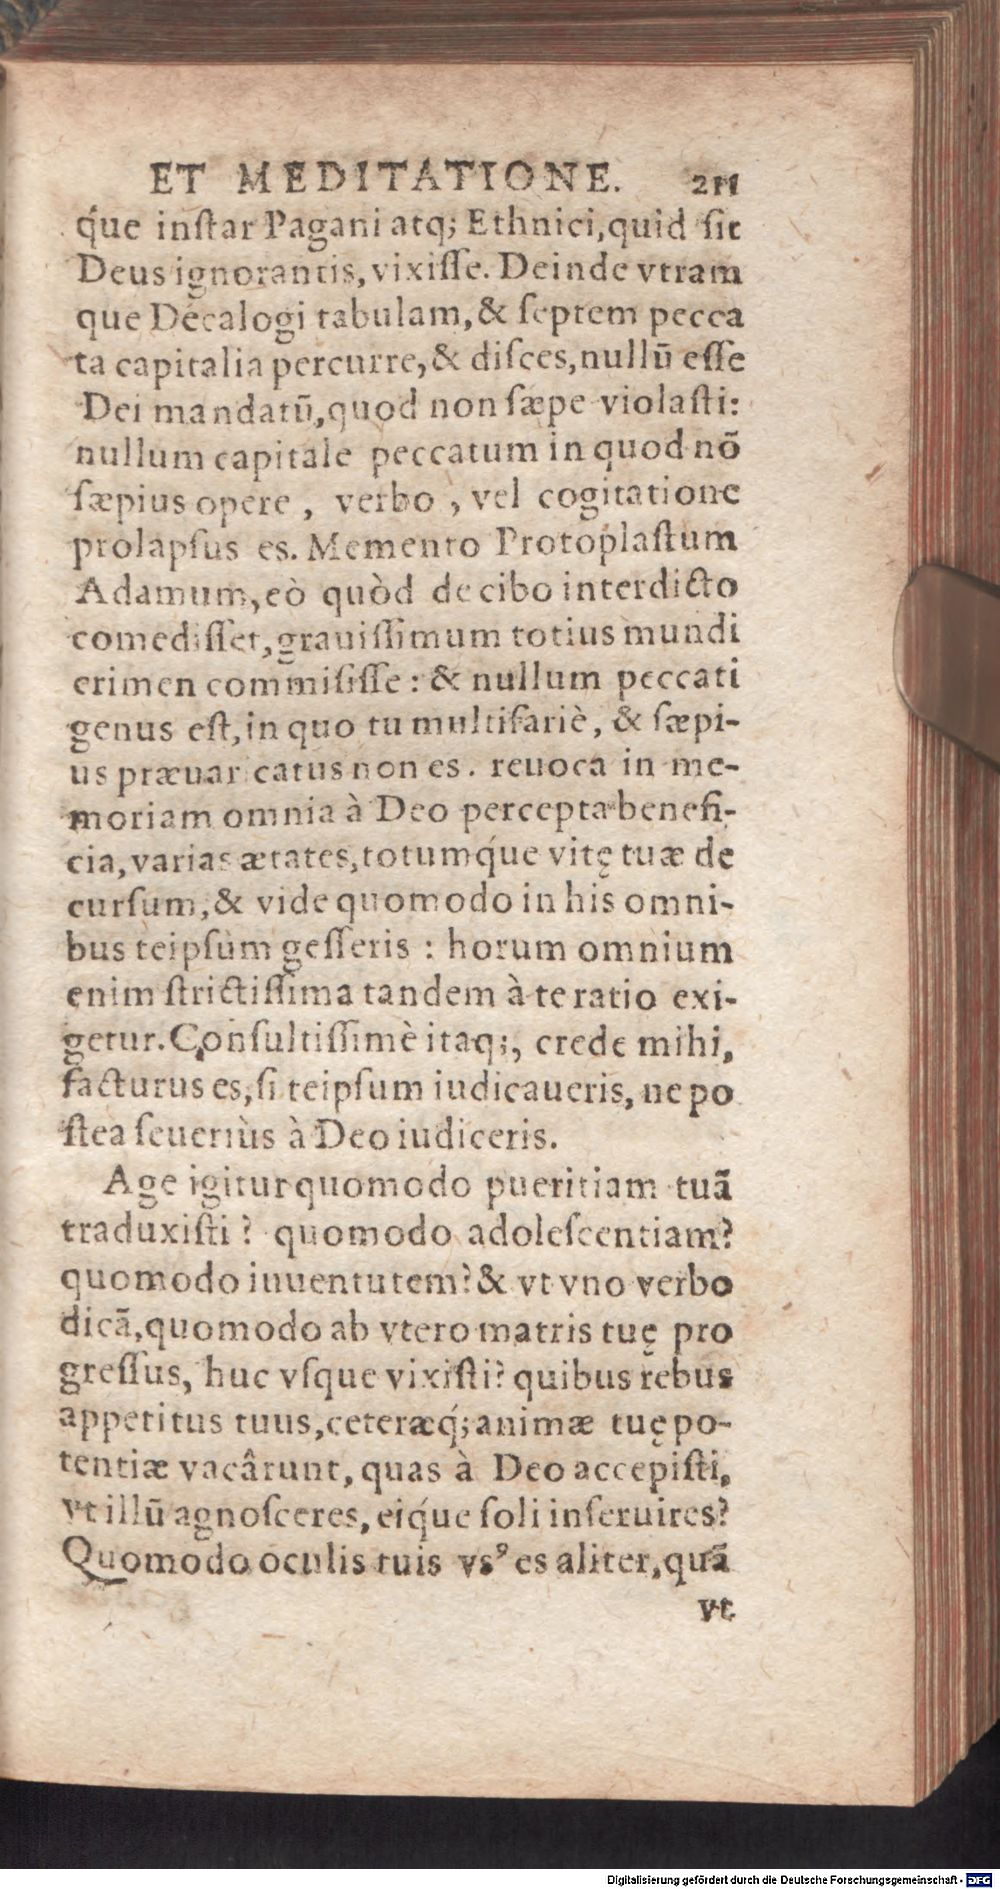 ET MEDITATIONE. 211
q́ue inſtar Pagani atq; Ethnici, quid ſit
Deus ignorantis, vixiſſe. Deinde vtram
que Decalogi tabulam, & ſeptem pecca
ta capitalia percurre, & diſces, nullū eſſe
Dei mandatū, quod non ſæpe violaſti:
nullum capitale peccatum in quod nō
ſæpius opere, verbo, vel cogitatione
prolapſus es. Memento Protoplaſtum
Adamum, eò quòd de cibo interdicto
comediſſet, grauiſſimum totius mundi
crimen commiſiſſe: & nullum peccati
genus eſt, in quo tu multifariè, & ſæpi-
us præuaricatus non es. reuoca in me-
moriam omnia à Deo percepta benefi-
cia, varias ætates, totumq́ue vitę tuæ de
curſum, & vide quomodo in his omni-
bus teipſum geſſeris: horum omnium
enim ſtrictiſſima tandem à te ratio exi-
getur. Conſultiſſimè itaq;, crede mihi,
facturus es, ſi teipſum iudicaueris, ne po
ſtea ſeueriùs à Deo iudiceris.
Age igitur quomodo pueritiam tuā
traduxiſti? quomodo adoleſcentiam?
quomodo iuuentutem? & vt vno verbo
dicā, quomodo ab vtero matris tuę pro
greſſus, huc vſque vixiſti? quibus rebus
appetitus tuus, ceteræq́; animæ tuę po-
tentiæ vacârunt, quas à Deo accepiſti,
vt illū agnoſceres, eiq́ue ſoli inſeruires?
Quomodo oculis tuis vsꝰ es aliter, quā
vt
Digitalisierung gefördert durch die Deutsche Forschungsgemeinschaft - DFG